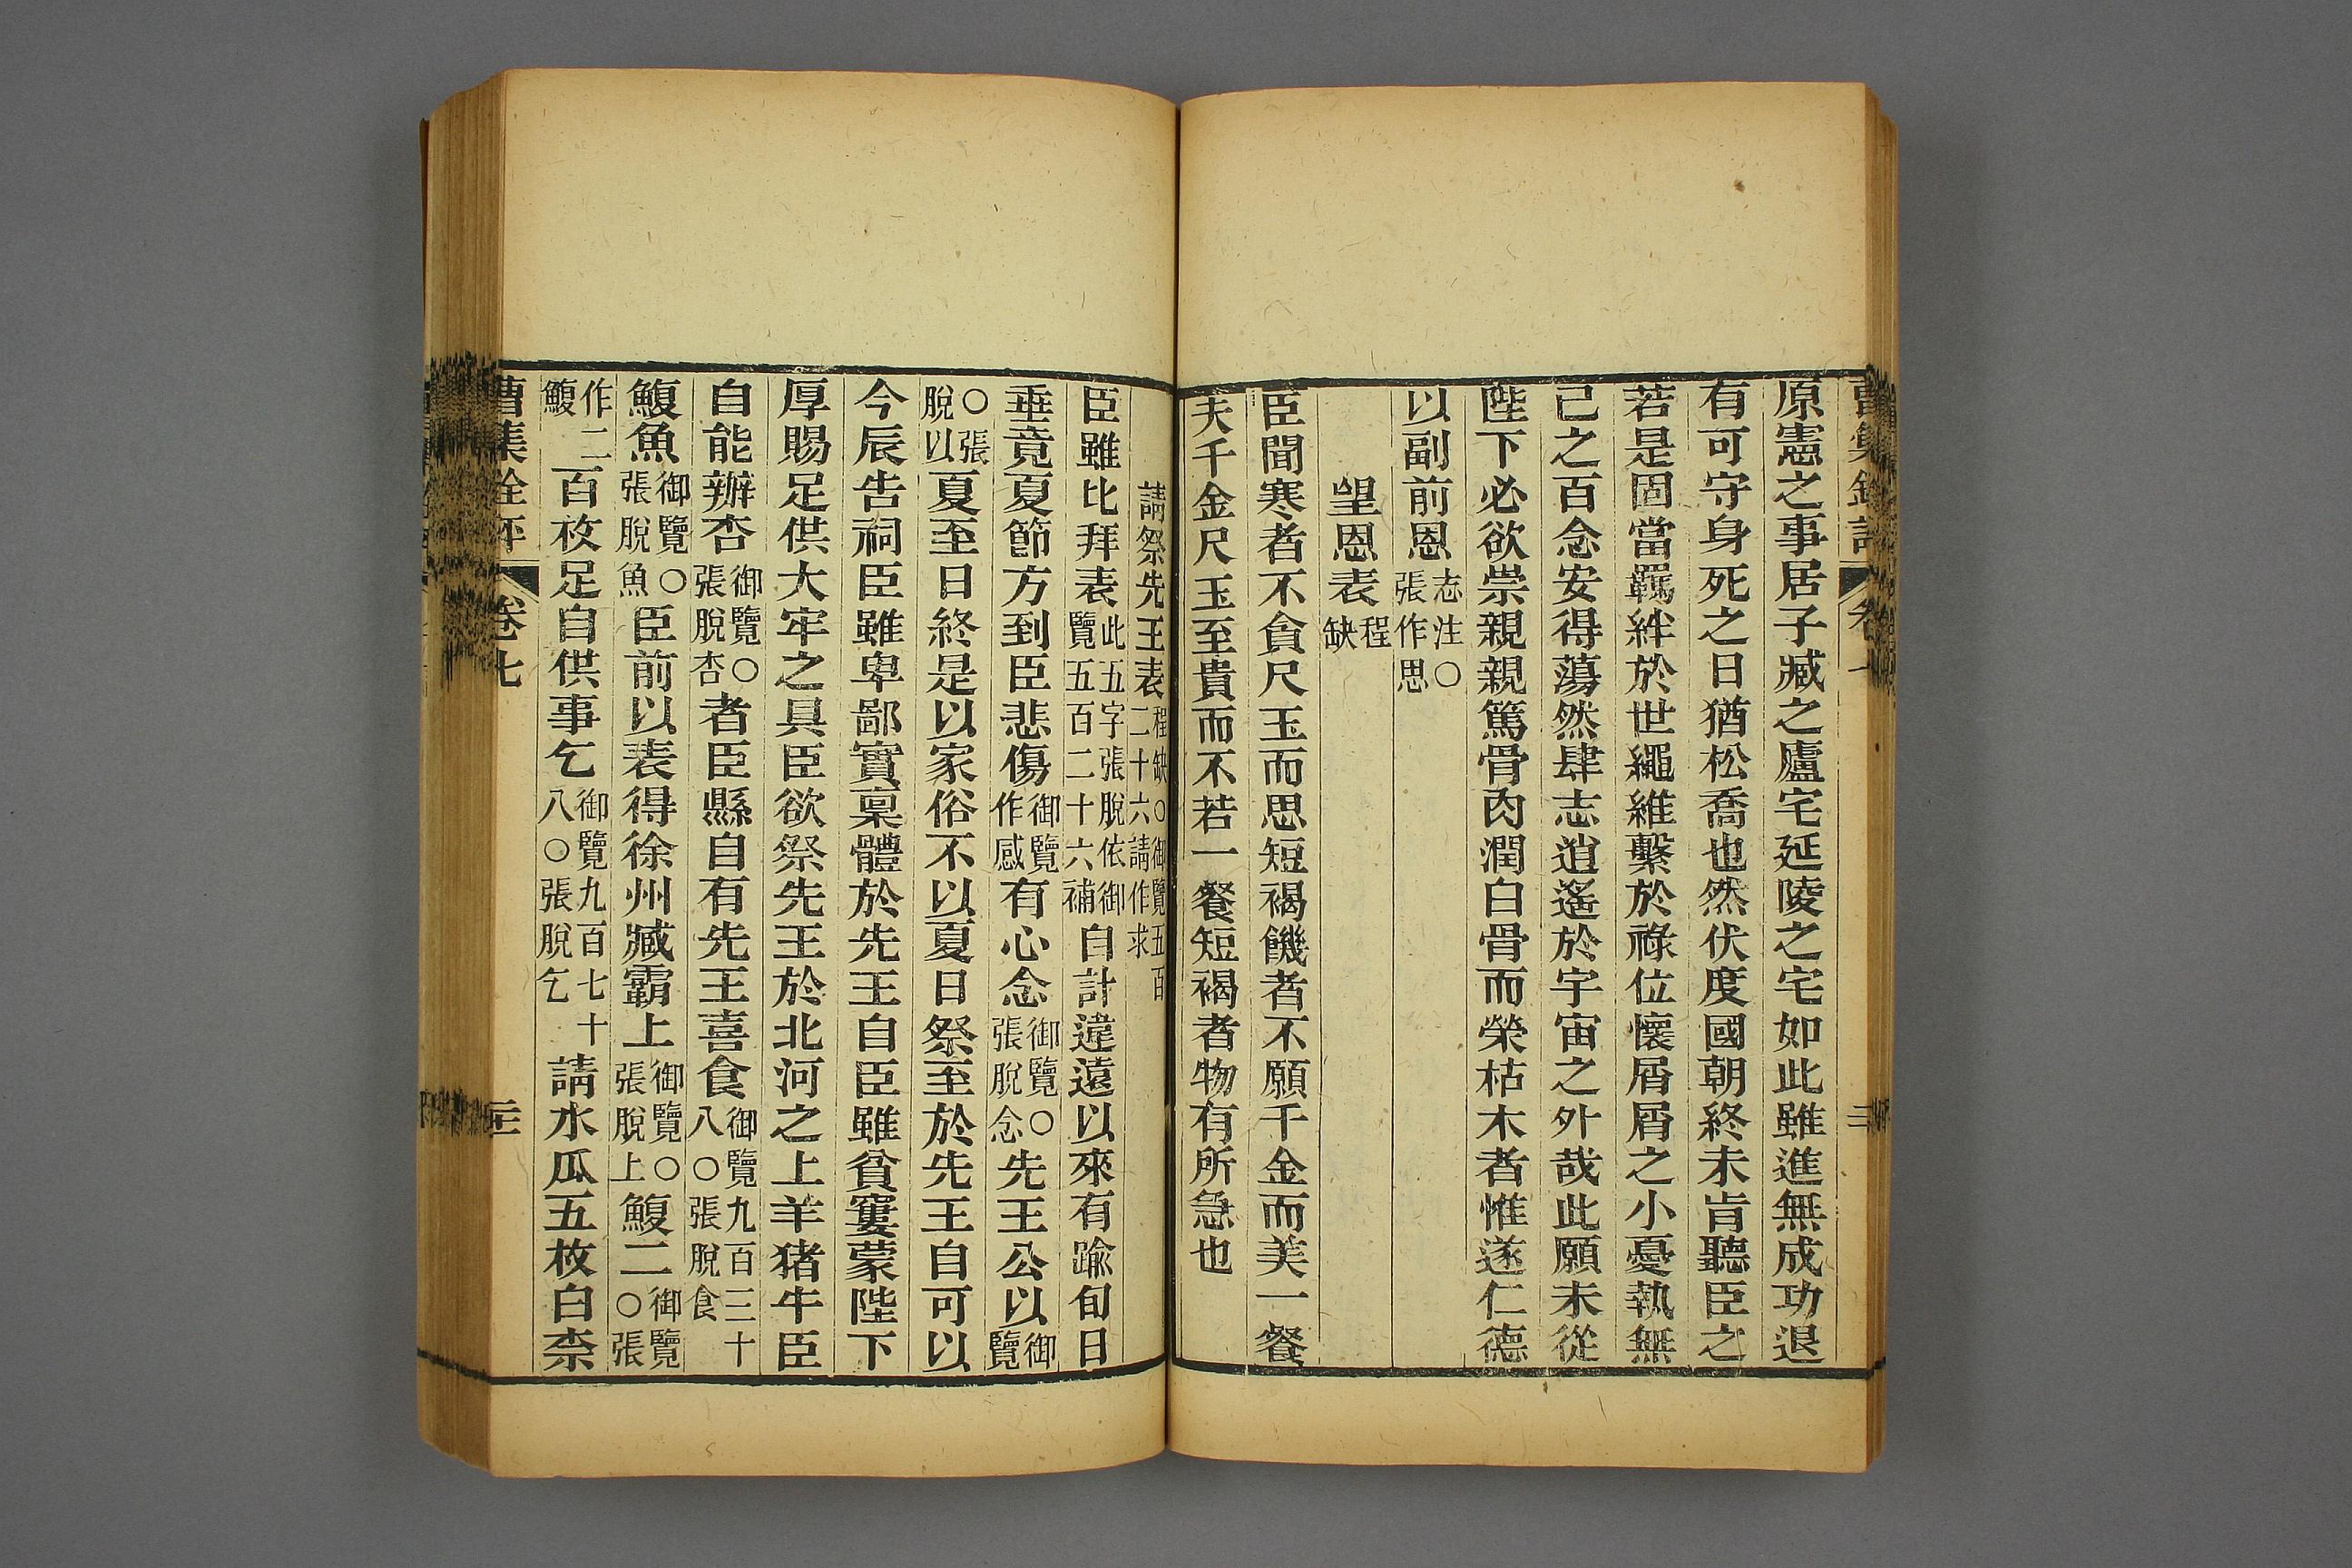 原憲之事居子臧之廬宅延陵之宅如此雖進無成功退
有可守身死之日猶松喬也然伏度國朝終未肯聽臣之
若是固當羈絆於世繩維繫於祿位懷屑屑之小憂執無
已之百念安得蕩然肆志逍遙於宇宙之外哉此願未從
陛下必欲崇親親篤骨肉潤白骨而榮枯木者惟遂仁德
以副前恩志注○張作思
望恩表程缺
臣聞寒者不貪尺玉而思短褐饑者不願千金而美一餐
夫千金尺玉至貴而不若一餐短褐者物有所急也
請祭先王表程缺○御覽五百二十六請作求
臣雖比拜表此五字張脫依御覽五百二十六補自計違遠以來有踰旬日
垂竟夏節方到臣悲傷御覽作感有心念御覽○張脫念先王公以御覽
○張脫以夏至日終是以家俗不以夏日祭至於先王自可以
今辰告祠臣雖卑鄙實稟體於先王自臣雖貧窶蒙陛下
厚賜足供大牢之具臣欲祭先王於北河之上羊猪牛臣
自能辦杏御覽○張脫杏者臣縣自有先王喜食御覽九百三十八○張脫食
鰒魚御覽○張脫魚臣前以表得徐州臧霸上御覽○張脫上鰒二御覽○張
作二鰒百枚足自供事乞御覽九百七十八○張脫乞請水瓜五枚白柰
曹集銓評
卷七